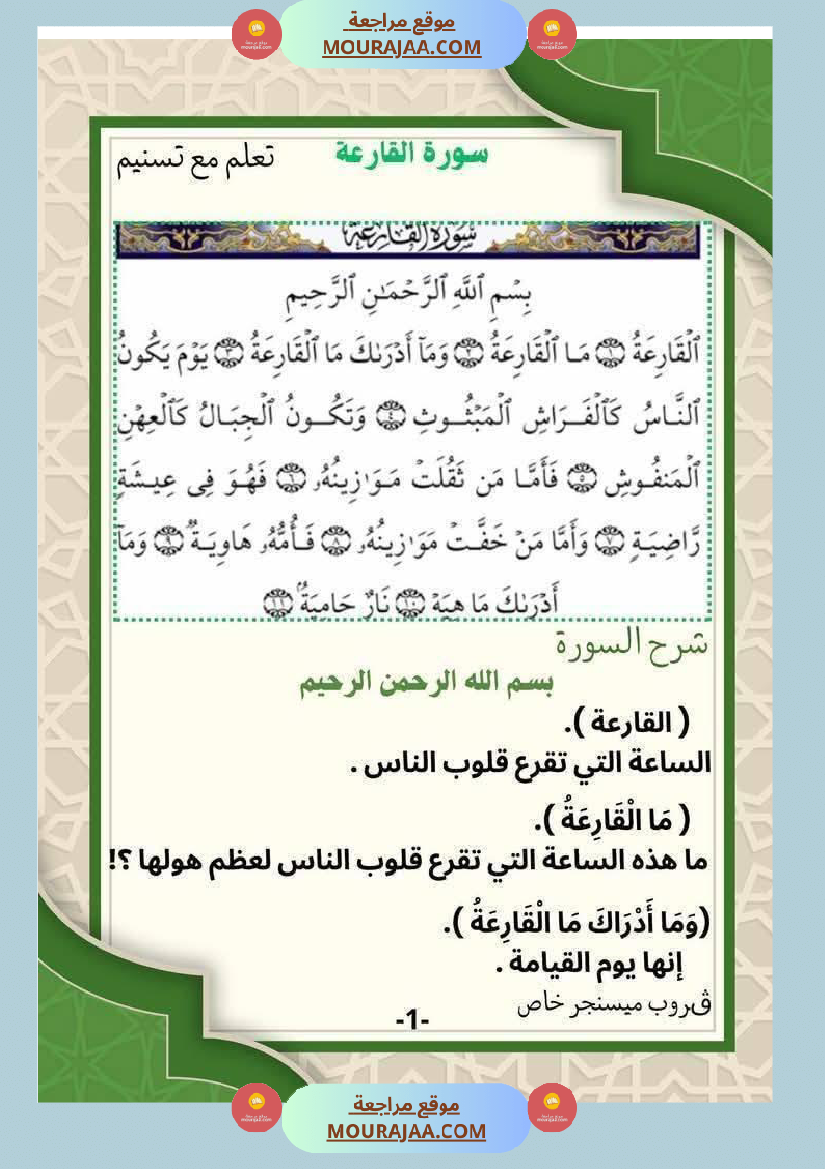 موقع مراجعة
MOURAJAA.COM
سورة القارعة
تعلم مع تسنيم
سُورَةُ القَارِعَةِ
بِسْمِ ٱللَّهِ ٱلرَّحْمَٰنِ ٱلرَّحِيمِ
ٱلْقَارِعَةُ ١ مَا ٱلْقَارِعَةُ ٢ وَمَآ أَدْرَىٰكَ مَا ٱلْقَارِعَةُ ٣ يَوْمَ يَكُونُ
ٱلنَّاسُ كَٱلْفَرَاشِ ٱلْمَبْثُوثِ ٤ وَتَكُونُ ٱلْجِبَالُ كَٱلْعِهْنِ
ٱلْمَنفُوشِ ٥ فَأَمَّا مَن ثَقُلَتْ مَوَٰزِينُهُۥ ٦ فَهُوَ فِى عِيشَةٍ
رَّاضِيَةٍ ٧ وَأَمَّا مَنْ خَفَّتْ مَوَٰزِينُهُۥ ٨ فَأُمُّهُۥ هَاوِيَةٌ ٩ وَمَآ
أَدْرَىٰكَ مَا هِيَهْ ١٠ نَارٌ حَامِيَةٌۢ ١١
شرح السورة
بسم الله الرحمن الرحيم
( القارعة ).
الساعة التي تقرع قلوب الناس .
( مَا الْقَارِعَةُ ).
ما هذه الساعة التي تقرع قلوب الناس لعظم هولها ؟!
(وَمَا أَدْرَاكَ مَا الْقَارِعَةُ ).
إنها يوم القيامة .
ڨروب ميسنجر خاص
-1-
موقع مراجعة
MOURAJAA.COM